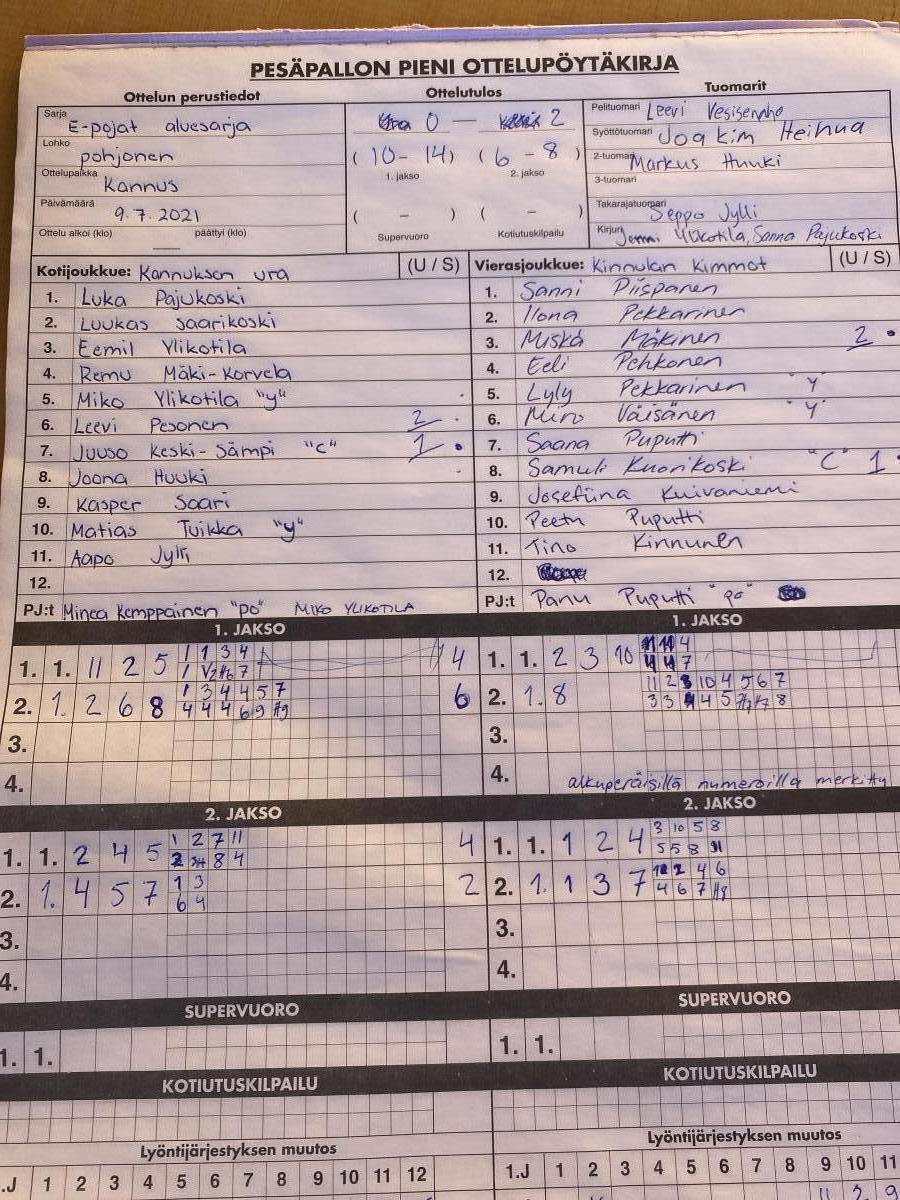 PESÄPALLON PIENI OTTELUPÖYTÄKIRJA
Ottelun perustiedot
Ottelutulos
Tuomarit
Sarja E-pojat aluesarja
Lohko pohjonen
Ottelupaikka Kannus
Päivämäärä 9.7.2021
Ottelu alkoi (klo) päättyi (klo)
0 — 2
(10-14) (6-8)
1. jakso 2. jakso
( - ) ( - )
Supervuoro Kotiutuskilpailu
Pelituomari Leevi
Syöttötuomari Joakim Heihua
2-tuomari Markus Huuki
3-tuomari
Takarajatuomari Seppo Jylli
Kirjuri Ylikotila, Sanna Pajukoski
Kotijoukkue: Kannuksen ura (U / S)
1. Luka Pajukoski
2. Luukas Saarikoski
3. Eemil Ylikotila
4. Remu Mäki-Korvela
5. Miko Ylikotila "y"
6. Leevi Pesonen 2
7. Juuso Keski-Sämpi "C" 1
8. Joona Huuki
9. Kasper Saari
10. Matias Tuikka "y"
11. Aapo Jylli
12.
PJ:t Minea Kemppainen "po" MIKO YLIKOTILA
Vierasjoukkue: Kinnulan Kimmot (U / S)
1. Sanni Piispanen
2. Ilona Pekkarinen
3. Miska Mäkinen 2
4. Eeli Pehkonen
5. Lyly Pekkarinen "Y"
6. Miro Väisänen "Y"
7. Saana Puputti
8. Samuli Kuorikoski "C" 1
9. Josefiina Kuivaniemi
10. Peetu Puputti
11. Tino Kinnunen
12.
PJ:t Panu Puputti "po"
1. JAKSO
1. 1. 11 2 5 1 1 3 4 4
2. 1. 2 6 8 1 3 4 4 5 7 6
4 4 4 6 9
3.
4.
1. JAKSO
1. 1. 2 3 10
2. 1. 8 11 2 3 10 4 5 6 7
3.
4. alkuperäisillä numeroilla merkitty
2. JAKSO
1. 1. 2 4 5 1 2 7 11 4
8 4
2. 1. 4 5 7 1 3 2
6 4
3.
4.
2. JAKSO
1. 1. 1 2 4 3 10 5 8
5 5 8 11
2. 1. 1 3 7
4 6 7
3.
4.
SUPERVUORO
1. 1.
SUPERVUORO
1. 1.
KOTIUTUSKILPAILU
KOTIUTUSKILPAILU
Lyöntijärjestyksen muutos
.J 1 2 3 4 5 6 7 8 9 10 11 12
Lyöntijärjestyksen muutos
1.J 1 2 3 4 5 6 7 8 9 10 11